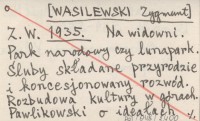 [WASILEWSKI Zygmunt]
Z. W. 1935. Na widowni.
Park narodowy czy lunapark.
Śluby składane przyrodzie
i koncesjonowany rozwód.
Rozbudowa kultury w górach.
Pawlikowski o ideałach.